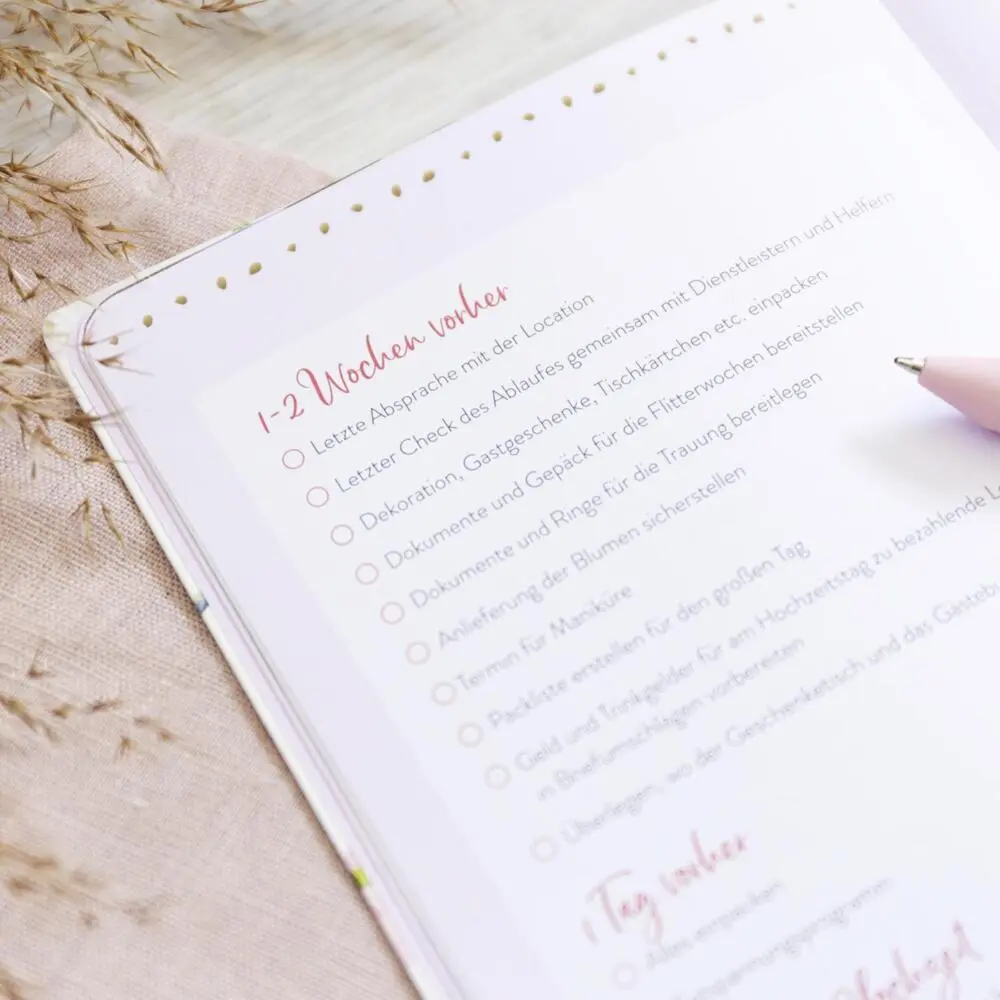 1-2 Wochen vorher
Letzte Absprache mit der Location
Letzter Check des Ablaufes gemeinsam mit Dienstleistern und Helfern
Dekoration, Gastgeschenke, Tischkärtchen etc. einpacken
Dokumente und Gepäck für die Flitterwochen bereitstellen
Dokumente und Ringe für die Trauung bereitlegen
Anlieferung der Blumen sicherstellen
Termin für Maniküre
Packliste erstellen für den großen Tag
Geld und Trinkgelder für am Hochzeitstag zu bezahlende
in Briefumschlägen vorbereiten
Überlegen, wo der Geschenketisch und das
1 Tag vorher
Alles einpacken